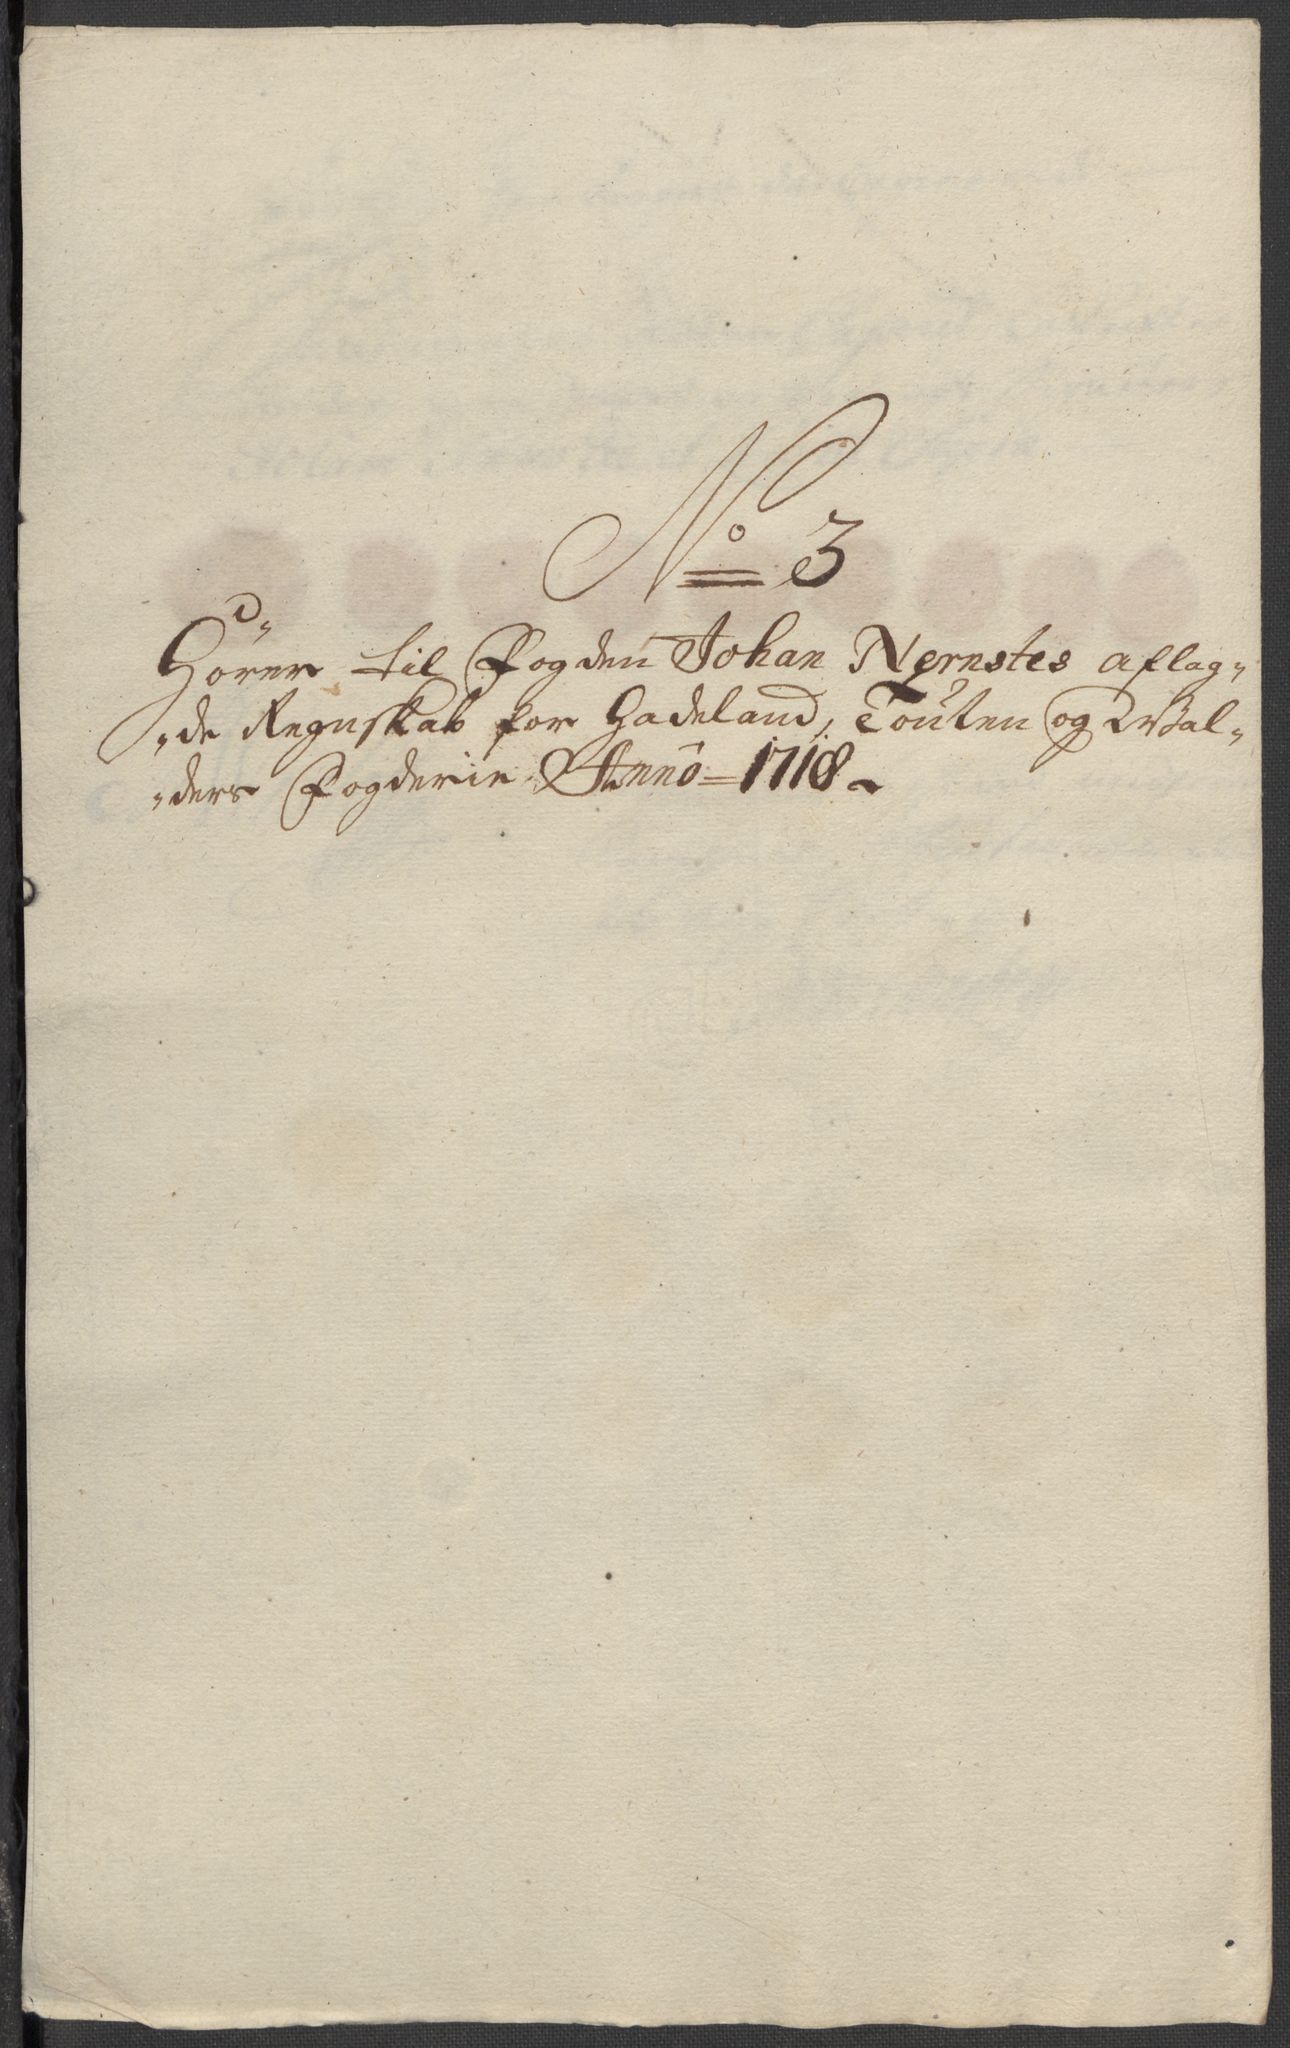 No 3
Hörer til Fogden Johan Nernstes aflag-
-de Regnskab for Hadeland, Touten og Wal-
-ders Fogderie Anno 1718